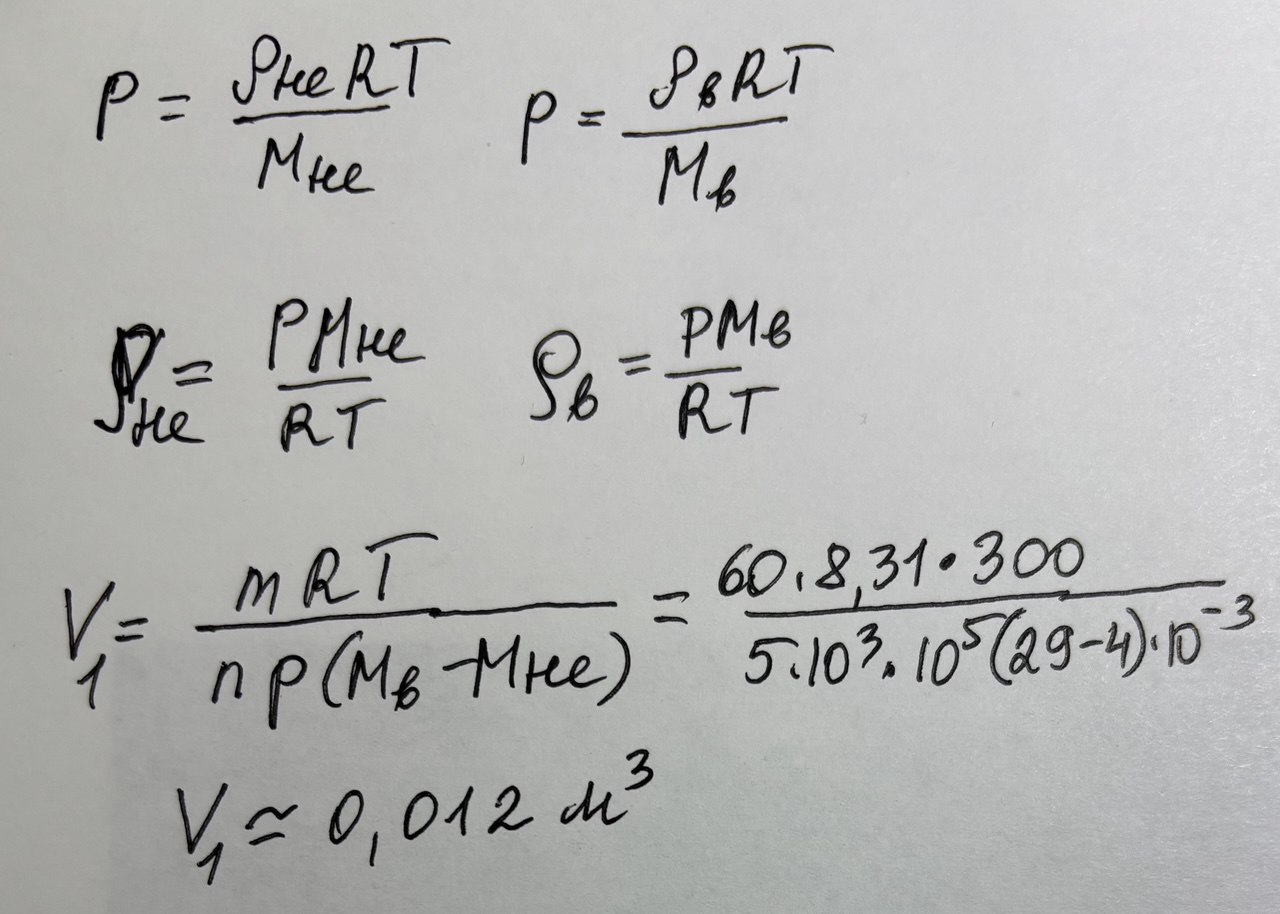 P = ρHe RT / MHe P = ρв RT / Mв
ρHe = PMHe / RT ρв = PMв / RT
V1 = mRT / np(Mв - MHe) = 60·8,31·300 / 5·10³·10⁵(29-4)·10⁻³
V1 ≃ 0,012 м³